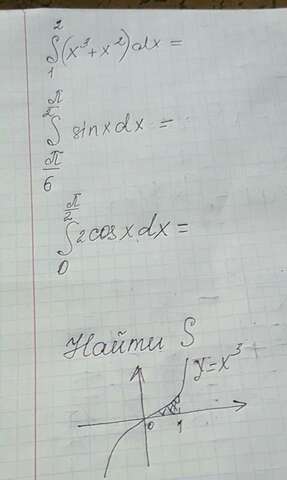 2
∫(x³+x²)dx=
1
π/2
∫ sinxdx =
π/6
π/2
∫2cosx dx=
0
Найти S
y=x³
0 1